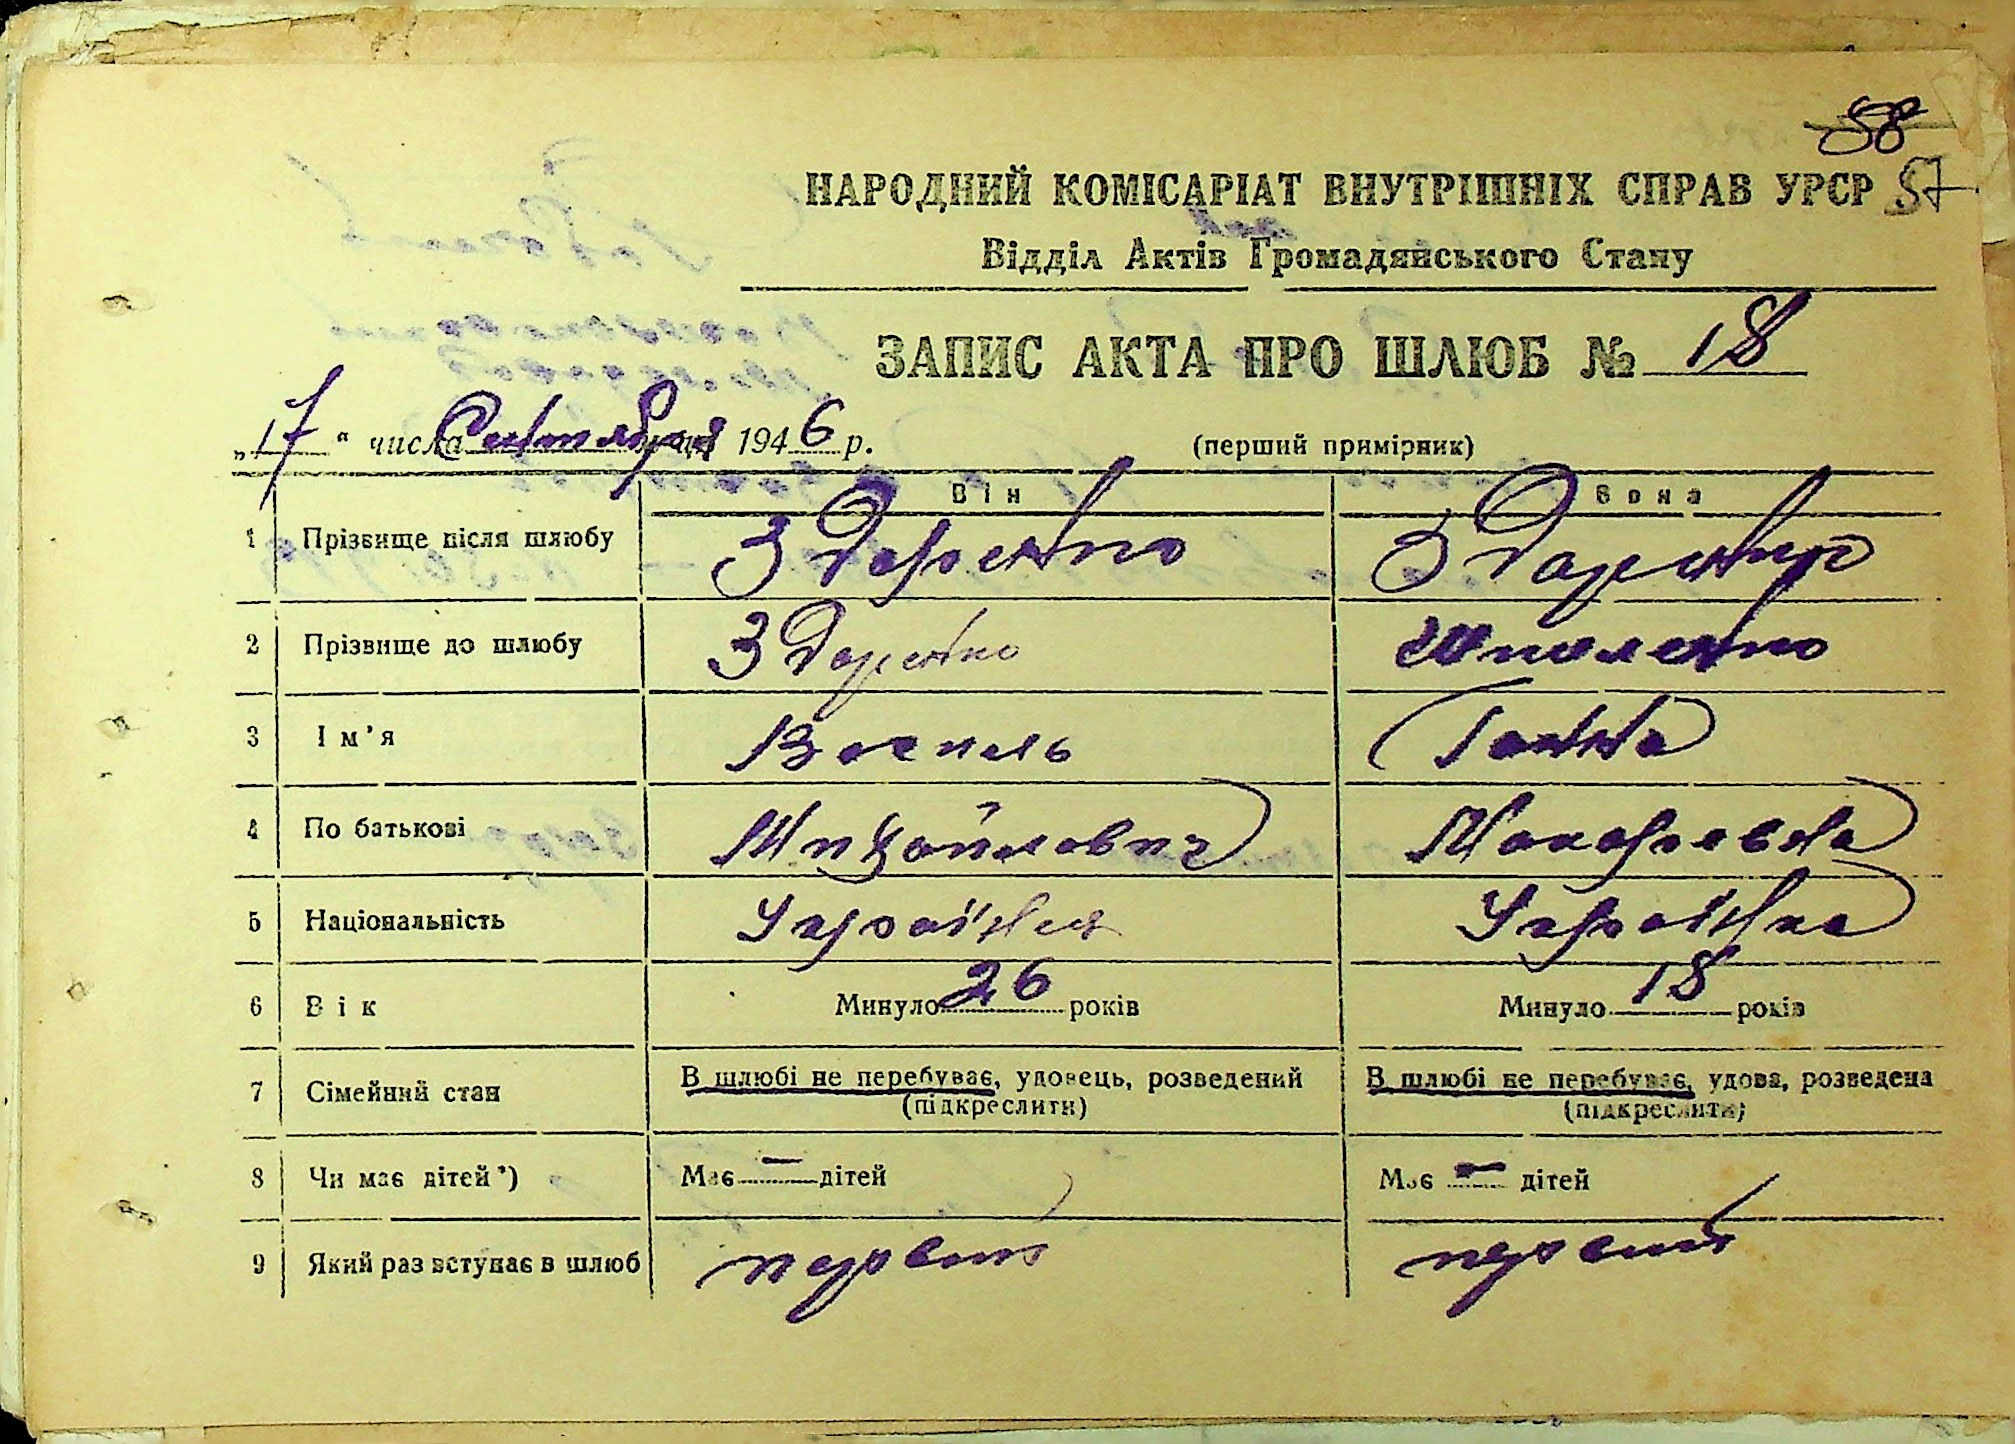 58
НАРОДНИЙ КОМІСАРІАТ ВНУТРІШНІХ СПРАВ УРСР 57
Відділ Актів Громадянського Стану
ЗАПИС АКТА ПРО ШЛЮБ № 18
„17“ числа Сентября 1946 р. (перший примірник)
Він Вона
1 Прізвище після шлюбу Здоренко Здоренко
2 Прізвище до шлюбу Здоренко Шполенко
3 Ім’я Василь Ганна
4 По батькові Михайлович Макаревна
5 Національність Українец Українка
6 Вік Минуло 26 років Минуло 18 років
7 Сімейний стан В шлюбі не перебуває, удовець, розведений В шлюбі не перебуває, удова, розведена
(підкреслити) (підкреслити)
8 Чи має дітей *) Має — дітей Має — дітей
9 Який раз вступає в шлюб первий первий